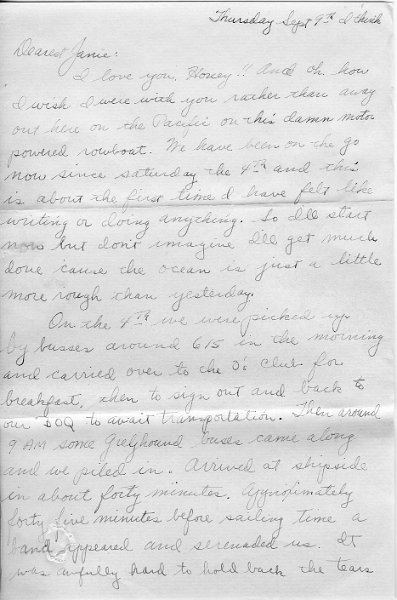 Thursday Sept 9th I think
Dearest Janie:
I love you, Honey!! And oh how
I wish I were with you rather than away
out here on the Pacific on this damn motor
powered rowboat. We have been on the go
now since saturday the 4th and this
is about the first time I have felt like
writing or doing anything. So I'll start
now but don't imagine I'll get much
done 'cause the ocean is just a little
more rough than yesterday.
On the 4th we were picked up
by busses around 615 in the morning
and carried over to the O's Club for
breakfast, then to sign out and back to
our BOQ to await transportation. Then around
9 AM some Greyhound buses came along
and we piled in. Arrived at shipside
in about forty minutes. Approximately
forty five minutes before sailing time a
band appeared and serenaded us. It
was awfully hard to hold back the tears